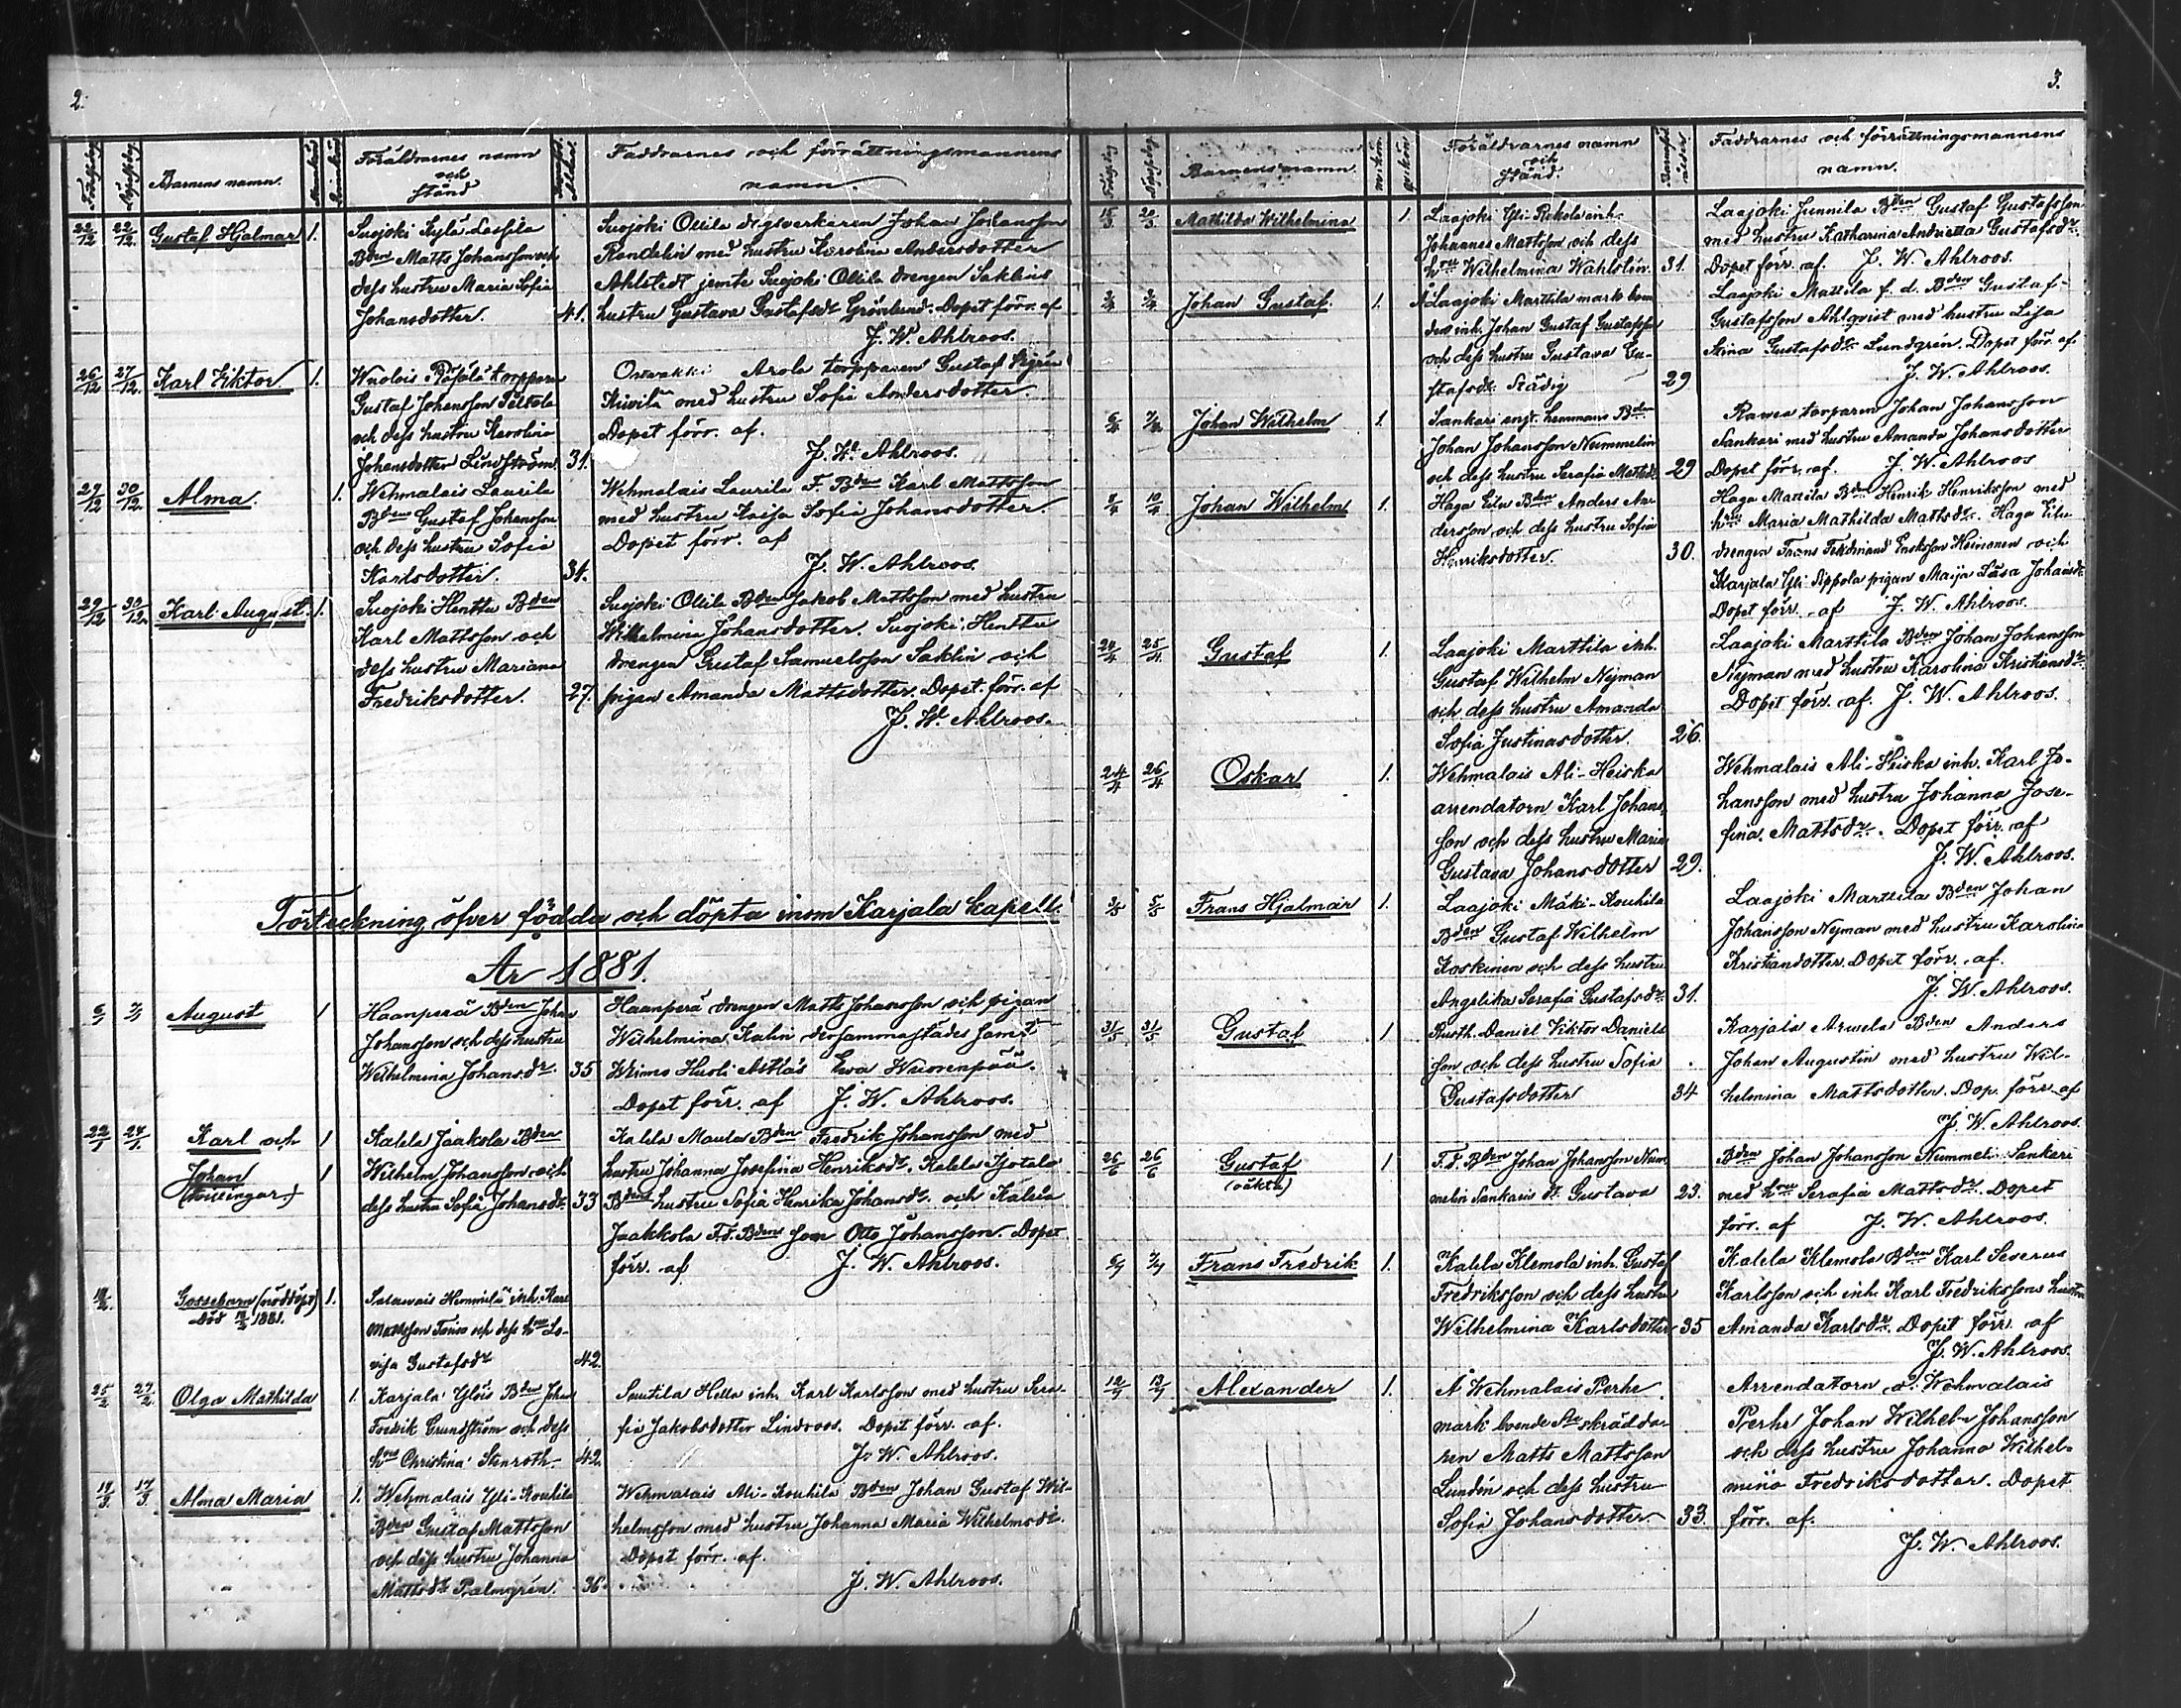 2.
Födelsedag
Döpelsedag
Barnens namn.
Mankön
Qvinkön
Föräldrarnes namn
och
stånd
Faddrarnes och förrättningsmannens
namn.
22/12 22/12 Gustaf Hjalmar 1.
Suojoki Kylä Lassila
Bden Matts Johansson och
dess hustru Maria Sofia
Johansdotter. 41.
Suojoki Ollila degtverkaren Johan Johansson
Randelin med hustru Karolina Andersdotter
Ahlstedt jemte Suojoki Ollila drengen Saklins
hustru Gustava Gustafsdr Grönlund. Dopet förr. af
J. W. Ahlroos.
26/12 27/12 Karl Viktor 1.
torpparen
Gustaf Johansson Peltola
och dess hustru Karolina
Johansdotter Lindström 31.
Arola torpparen Gustaf
med hustru Sofia Andersdotter.
Dopet förr. af.
J. W. Ahlroos.
29/12 30/12 Alma. 1.
Wehmalais Laurila
Bden Gustaf Johansson
och dess hustru Sofia
Karlsdotter. 34.
Wehmalais Laurila F. Bden Karl Mattsson
med hustru Kaisa Sofia Johansdotter.
Dopet förr. af
J. W. Ahlroos.
29/12 30/12 Karl August. 1.
Suojoki Henttu Bden
Karl Mattsson och
dess hustru Mariana
Fredriksdotter. 27.
Suojoki Ollila Bden Jakob Mattsson med hustru
Wilhelmina Johansdotter. Suojoki Henttu
drengen Gustaf Samuelsson Saklin och
pigan Amanda Mattsdotter. Dopet förr. af
J. W. Ahlroos.
Förteckning öfver födda och döpta inom Karjala kapell.
År 1881.
6/1 7/1 August 1
Haanperä Bden Johan
Johansson och dess hustru
Wilhelmina Johansdr. 35
Haanperä drengen Matts Johansson och pigan
Wilhelmina Kalin dersammastädes samt
Huoli Ewa
Dopet förr. af J. W. Ahlroos.
22/1 24/1 Karl och 1
Johan 1
(tvillingar)
Kalela Jaakola Bden
Wilhelm Johansson och
dess hustru Sofia Johansdr. 33
Kalela Maula Bden Fredrik Johansson med
hustru Johanna Josefina Henriksdr. Kalela Sjötala
Bdens hustru Sofia Henrika Johansdr. och Kalela
Jaakkola F.d. Bdens son Otto Johansson. Dopet
förr. af J. W. Ahlroos.
Gossebarn (nöddöpt) 1.
död 1881.
Salavais Hemmilä inh. Karl
Mattsson och dess hru Lo-
visa Gustafsdr 42.
25/2 27/2 Olga Mathilda 1.
Karjala Ylöis Bden Johan
Fredrik Grundström och dess
hru Christina Stenroth 42.
Suutila Hella inh. Karl Karlsson med hustru Sera-
fia Jakobsdotter Lindroos. Dopet förr. af.
J. W. Ahlroos.
17/3 Alma Maria 1.
Wehmalais Yli-Kouhila
Bden Gustaf Mattsson
och dess hustru Johanna
Mattsdr Palmgrén. 36.
Wehmalais Ali-Kouhila Bden Johan Gustaf Wil-
helmsson med hustru Johanna Maria Wilhelmsdr.
Dopet förr. af.
J. W. Ahlroos.
3.
Barnens namn
m. kön.
qv. kön.
Föräldrarnes namn
och
stånd.
Faddrarnes och förrättningsmannens
namn.
15/3 20/3 Mathilda Wilhelmina 1.
Laajoki Yli Rekola inh.
Johannes Mattsson och dess
hru Wilhelmina Wahlstén. 31.
Laajoki Junnila Bden Gustaf Gustafsson
med hustru Katharina Andrietta Gustafsdr.
Dopet förr. af. J. W. Ahlroos.
Johan Gustaf. 1.
Å Laajoki Marttila mark boen
de inh. Johan Gustaf Gustafsson
och dess hustru Gustava Gu-
stafsdr. Städig 29
Laajoki Mattila f. d. Bden Gustaf
Gustafsson Ahlqvist med hustru Lisa
Stina Gustafsdr. Lundgrén. Dopet förr. af
J. W. Ahlroos.
6/4 7/4 Johan Wilhelm 1.
Sankari hemmans Bden
Johan Johansson Nummelin
och dess hustru Serafia Mattsdr. 29
torparen Johan Johansson
Sankari med hustru Amanda Johansdotter
Dopet förr. af. J. W. Ahlroos
8/4 10/4 Johan Wilhelm 1.
Haga Eilu Bden Anders An-
dersson och dess hustru Sofia
Henriksdotter. 30.
Haga Mattila Bden Henrik Henriksson med
hru Maria Mathilda Mattsdr. Haga Eilu
drengen Frans Ferdinand Eriksson Heinonen och
Karjala Yli Sippola pigan Maija Lisa Johansdr.
Dopet förr. af J. W. Ahlroos.
24/4 25/4 Gustaf 1.
Laajoki Marttila inh.
Gustaf Wilhelm Nyman
och dess hustru Amanda
Sofia Justinasdotter. 26.
Laajoki Marttila Bden Johan Johansson
Nyman med hustru Karolina Kristiansdr.
Dopet förr. af. J. W. Ahlroos.
24/4 26/4 Oskar 1.
Wehmalais Ali-Heiska
arrendatorn Karl Johans-
son och dess hustru Maria
Gustava Johansdotter 29.
Wehmalais Ali-Heiska inh. Karl Jo-
hansson med hustru Johanna Jose-
fina Mattsdr. Dopet förr. af
J. W. Ahlroos.
3/5 5/5 Frans Hjalmar 1.
Laajoki Mäki-Kouhila
Bden Gustaf Wilhelm
Koskinen och dess hustru
Angelika Serafia Gustafsdr. 31.
Laajoki Marttila Bden Johan
Johansson Nyman med hustru Karolina
Kristiandotter. Dopet förr. af.
J. W. Ahlroos.
31/5 31/5 Gustaf 1
Rusth. Daniel Viktor Daniels
son och dess hustru Sofia
Gustafsdotter 34
Karjala Bden Anders
Johan Augustin med hustru Wil-
helmina Mattsdotter. Dop. förr. af
J. W. Ahlroos.
26/6 26/6 Gustaf 1
(oäkta)
F.d. Bden Johan Johansson Num-
melin Sankaris dr. Gustava 23.
Bden Johan Johansson Nummelin Sankari
med hru Serafia Mattsdr. Dopet
förr. af J. W. Ahlroos.
6/7 7/7 Frans Fredrik 1.
Kalela Klemola inh. Gustaf
Fredriksson och dess hustru
Wilhelmina Karlsdotter 35
Kalela Klemola Bden Karl Severus
Karlsson och inh. Karl Fredrikssons hustru
Amanda Karlsdr. Dopet förr. af
J. W. Ahlroos.
12/7 13/7 Alexander 1.
Å Wehmalais Perhe
mark boende skrädda-
ren Matts Mattsson
Lundén och dess hustru
Sofia Johansdotter 33.
Arrendatorn å Wehmalais
Perhe Johan Wilhelm Johansson
och dess hustru Johanna Wilhel-
mina Fredriksdotter. Dopet
förr. af.
J. W. Ahlroos.